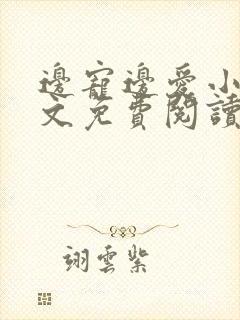 邊寵邊愛小
文免費閱讀
翊雲紫